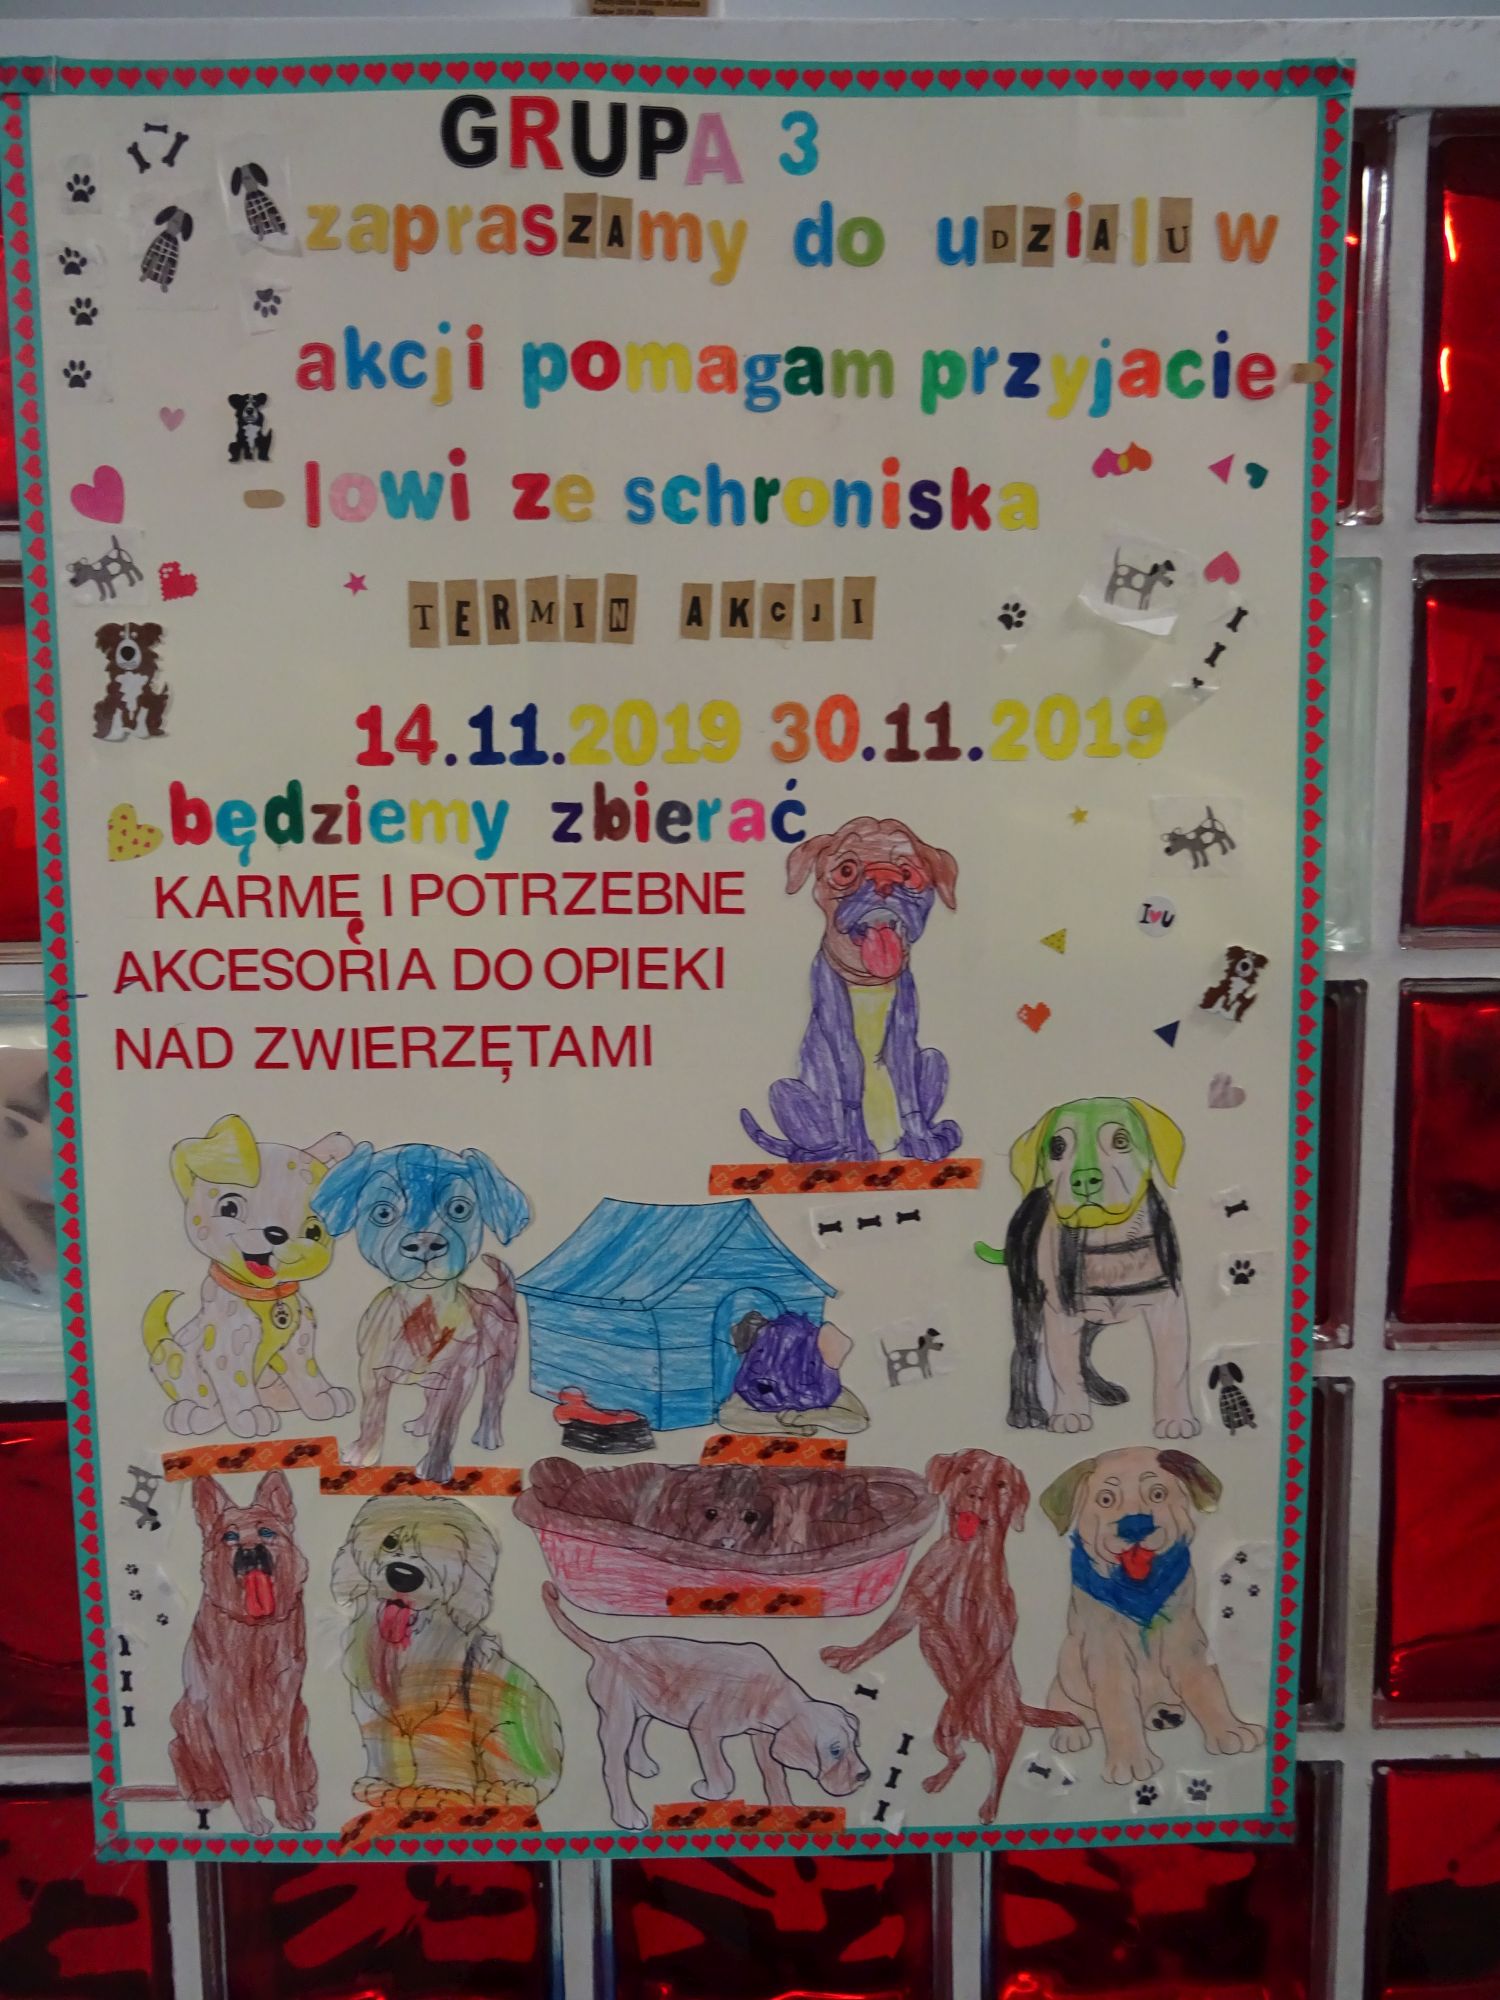 GRUPA 3
zapraszamy do udzialu w
akcji pomagam przyjacie-
-lowi ze schroniska
TERMIN AKCJI
14.11.2019 30.11.2019
będziemy zbierać
KARMĘ I POTRZEBNE
AKCESORIA DO OPIEKI
NAD ZWIERZĘTAMI
I♥U